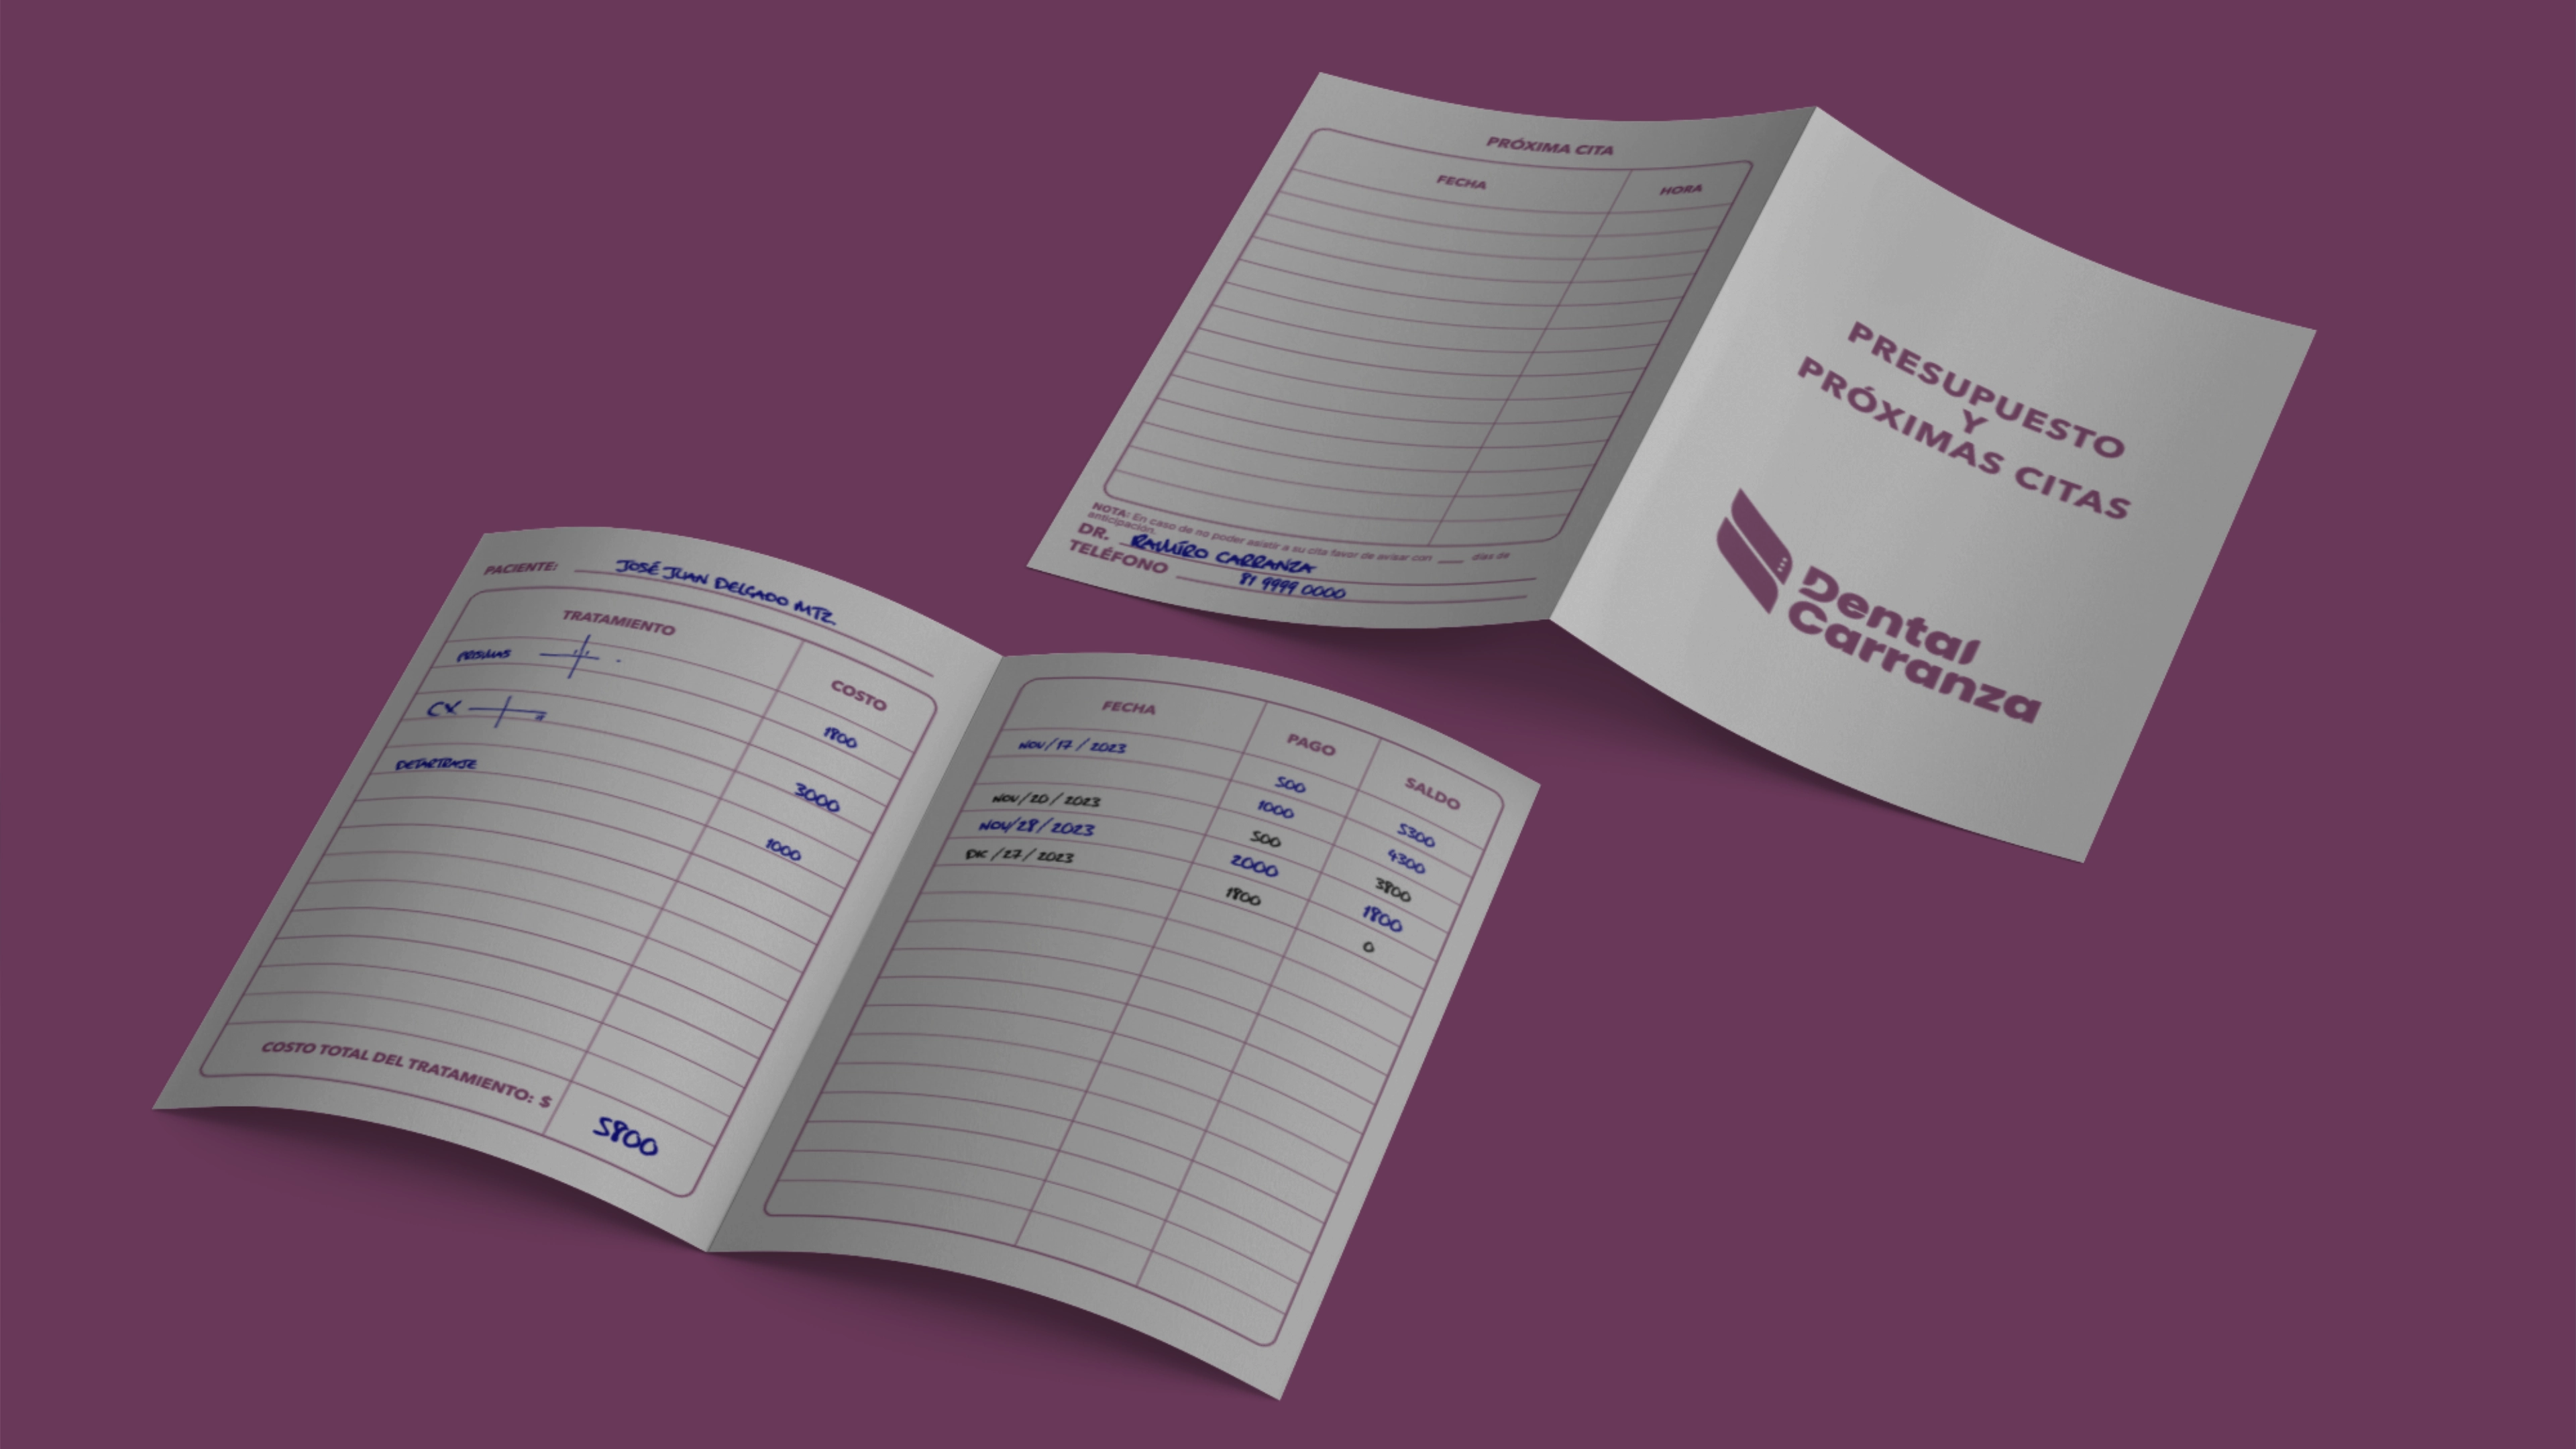 PRÓXIMA CITA
FECHA HORA
NOTA: En caso de no poder asistir a su cita favor de avisar con ____ días de
anticipación.
DR. RAMIRO CARRANZA
TELÉFONO 81 9999 0000
PRESUPUESTO
Y
PRÓXIMAS CITAS
Dental
Carranza
PACIENTE: JOSÉ JUAN DELGADO MTZ.
TRATAMIENTO COSTO
1800
CX 3000
DETARTRAJE 1000
COSTO TOTAL DEL TRATAMIENTO: $ 5800
FECHA PAGO SALDO
NOV/17/2023 500 5300
1000 4300
NOV/20/2023 500 3800
NOV/28/2023 2000 1800
DIC/27/2023 1800 0